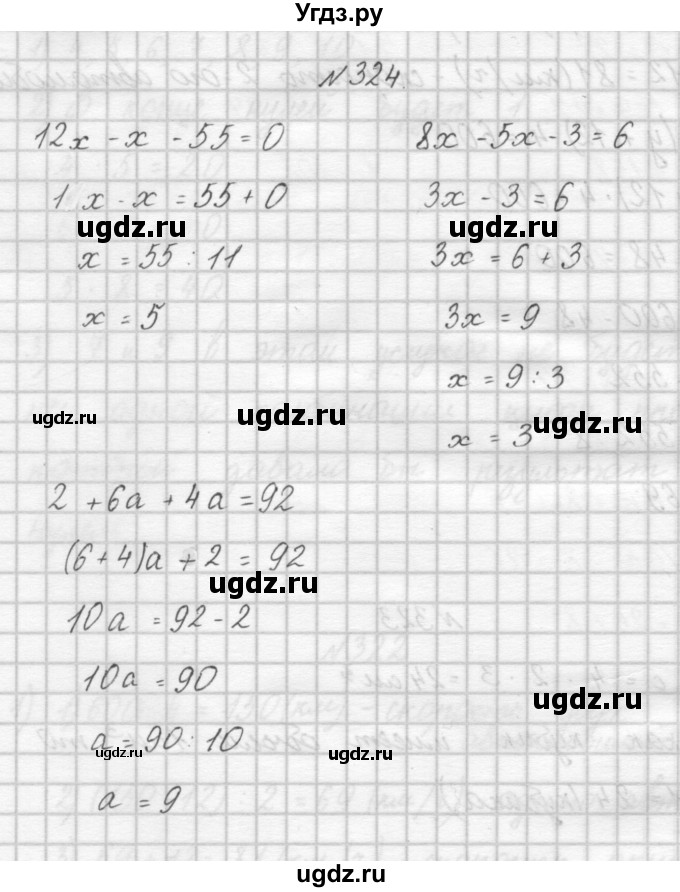 Угдз.ру
№324.
12x - x - 55 = 0
1 x - x = 55 + 0
ugdz.ru
x = 55 : 11
x = 5
8x - 5x - 3 = 6
3x - 3 = 6
ugdz.ru
3x = 6 + 3
3x = 9
x = 9 : 3
x = 3
ugdz.ru
ugdz.ru
ugdz.ru
2 + 6a + 4a = 92
(6+4)a + 2 = 92
ugdz.ru
10a = 92 - 2
10a = 90
ugdz.ru
a = 90 : 10
ugdz.ru
ugdz.ru
a = 9
ugdz.ru